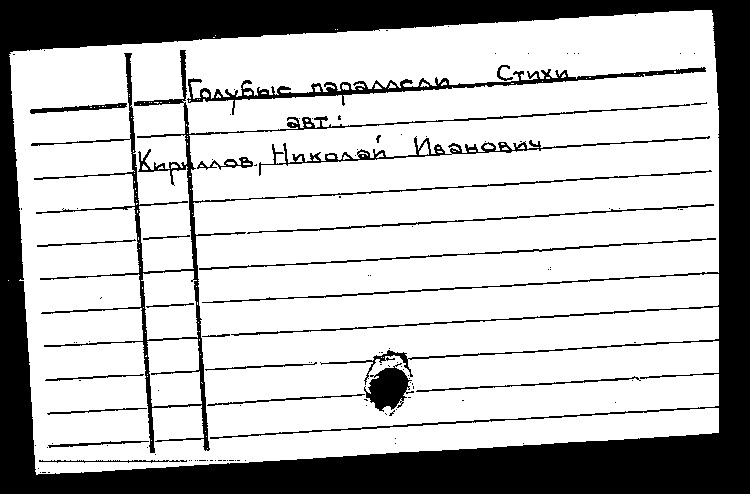 Голубые параллели Стихи
авт.:
Кириллов, Николай Иванович